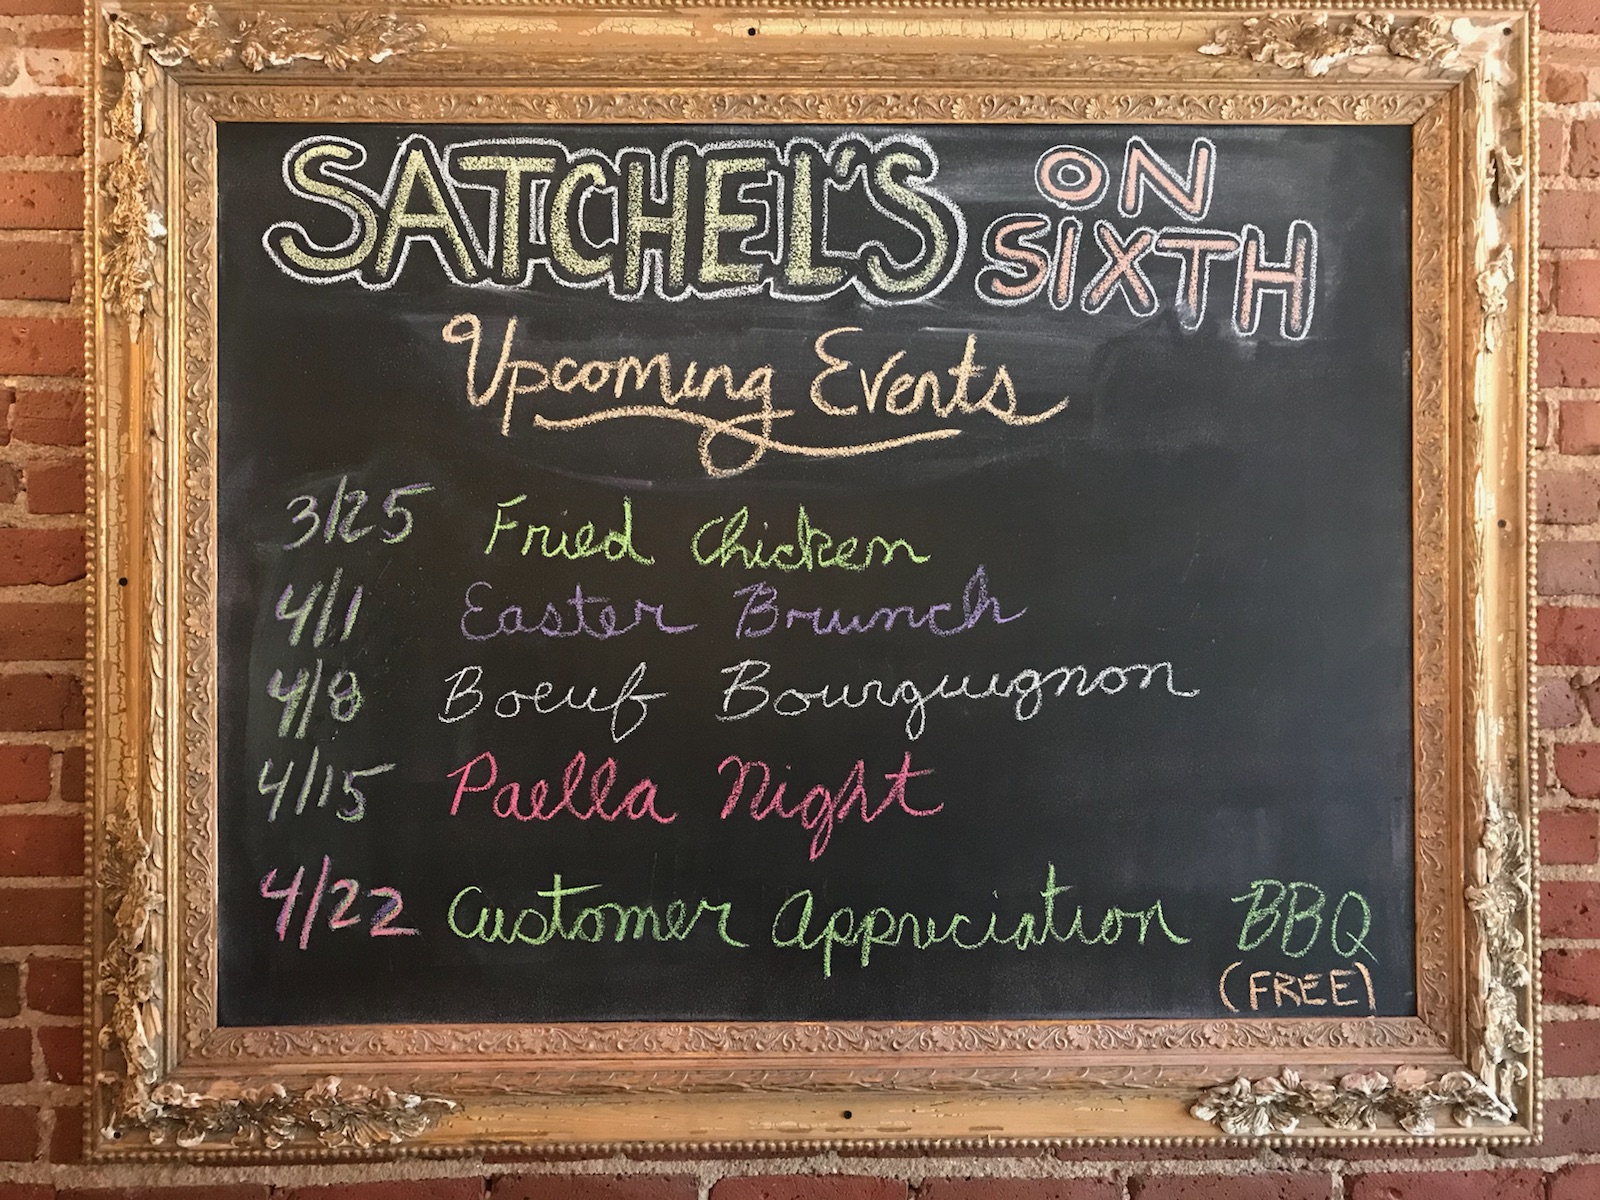 SATCHEL'S ON SIXTH
Upcoming Events
3/25 Fried Chicken
4/1 Easter Brunch
4/8 Boeuf Bourguignon
4/15 Paella Night
4/22 Customer Appreciation BBQ
(FREE)